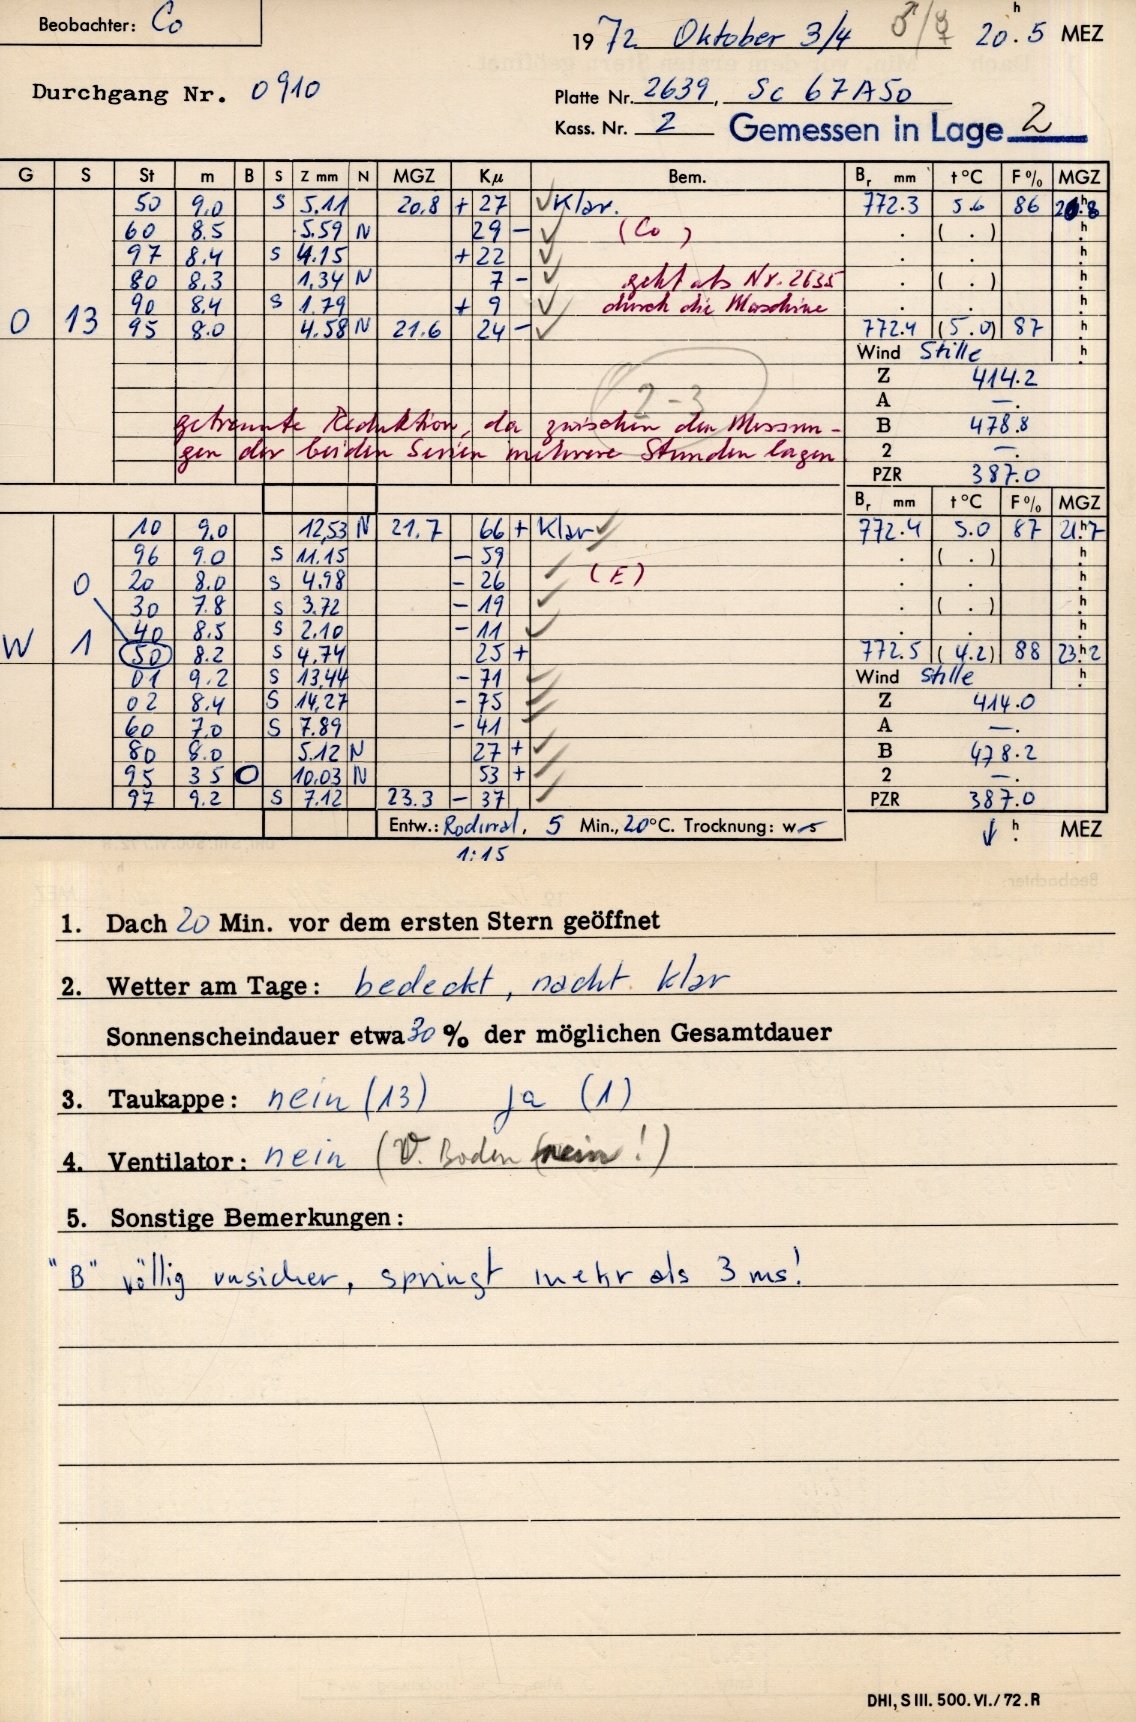 Beobachter: Co
1972 Oktober 3/4 ♂/☿ 20.5 h MEZ
Durchgang Nr. 0910
Platte Nr. 2639, Sc 67A50
Kass. Nr. 2 Gemessen in Lage 2
G S St m B S Z mm N MGZ Kμ Bem. Br mm t°C F% MGZ
50 9.0 S 5.11 20.8 + 27 ✓ Klar. 772.3 5.6 86 20.8 h
60 8.5 5.59 N 29 - ✓ (Co) . ( . ) h
97 8.4 S 4.15 + 22 ✓ . . h
80 8.3 1,34 N 7 - ✓ geht als Nr. 2635 . ( . ) h
90 8.4 S 1.79 + 9 ✓ durch die Maschine . . h
O 13 95 8.0 4.58 N 21.6 24 - ✓ 772.4 (5.0) 87 h
Wind Stille h
Z 414.2
2-3 A —.
getrennte Reduktion, da zwischen den Messun- B 478.8
gen der beiden Serien mehrere Stunden lagen 2 —.
PZR 387.0
Br mm t°C F% MGZ
10 9.0 12,53 N 21.7 66 + Klar ✓ 772.4 5.0 87 21.7 h
96 9.0 S 11.15 - 59 . ( . ) h
O 20 8.0 S 4.98 - 26 ✓ (E) . . h
30 7.8 S 3.72 - 19 ✓ . ( . ) h
40 8.5 S 2.10 - 11 ✓ . . h
W 1 50 8.2 S 4.74 25 + 772.5 (4.2) 88 23.2 h
01 9.2 S 13,44 - 71 ✓ Wind Stille h
02 8.4 S 14,27 - 75 ✓ Z 414.0
60 7.0 S 7.89 - 41 ✓ A —.
80 8.0 5.12 N 27 + ✓ B 478.2
95 3 5 O 10.03 N 53 + ✓ 2 —.
97 9.2 S 7.12 23.3 - 37 ✓ PZR 387.0
Entw.: Rodinal, 5 Min., 20°C. Trocknung: w-s ↓ h MEZ
1:15
1. Dach 20 Min. vor dem ersten Stern geöffnet
2. Wetter am Tage: bedeckt, nacht. klar
Sonnenscheindauer etwa 30 % der möglichen Gesamtdauer
3. Taukappe: nein (13) ja (1)
4. Ventilator: nein (V. Boden nein!)
5. Sonstige Bemerkungen:
"B" völlig unsicher, springt mehr als 3 ms!
DHI, S III. 500. VI./72.R